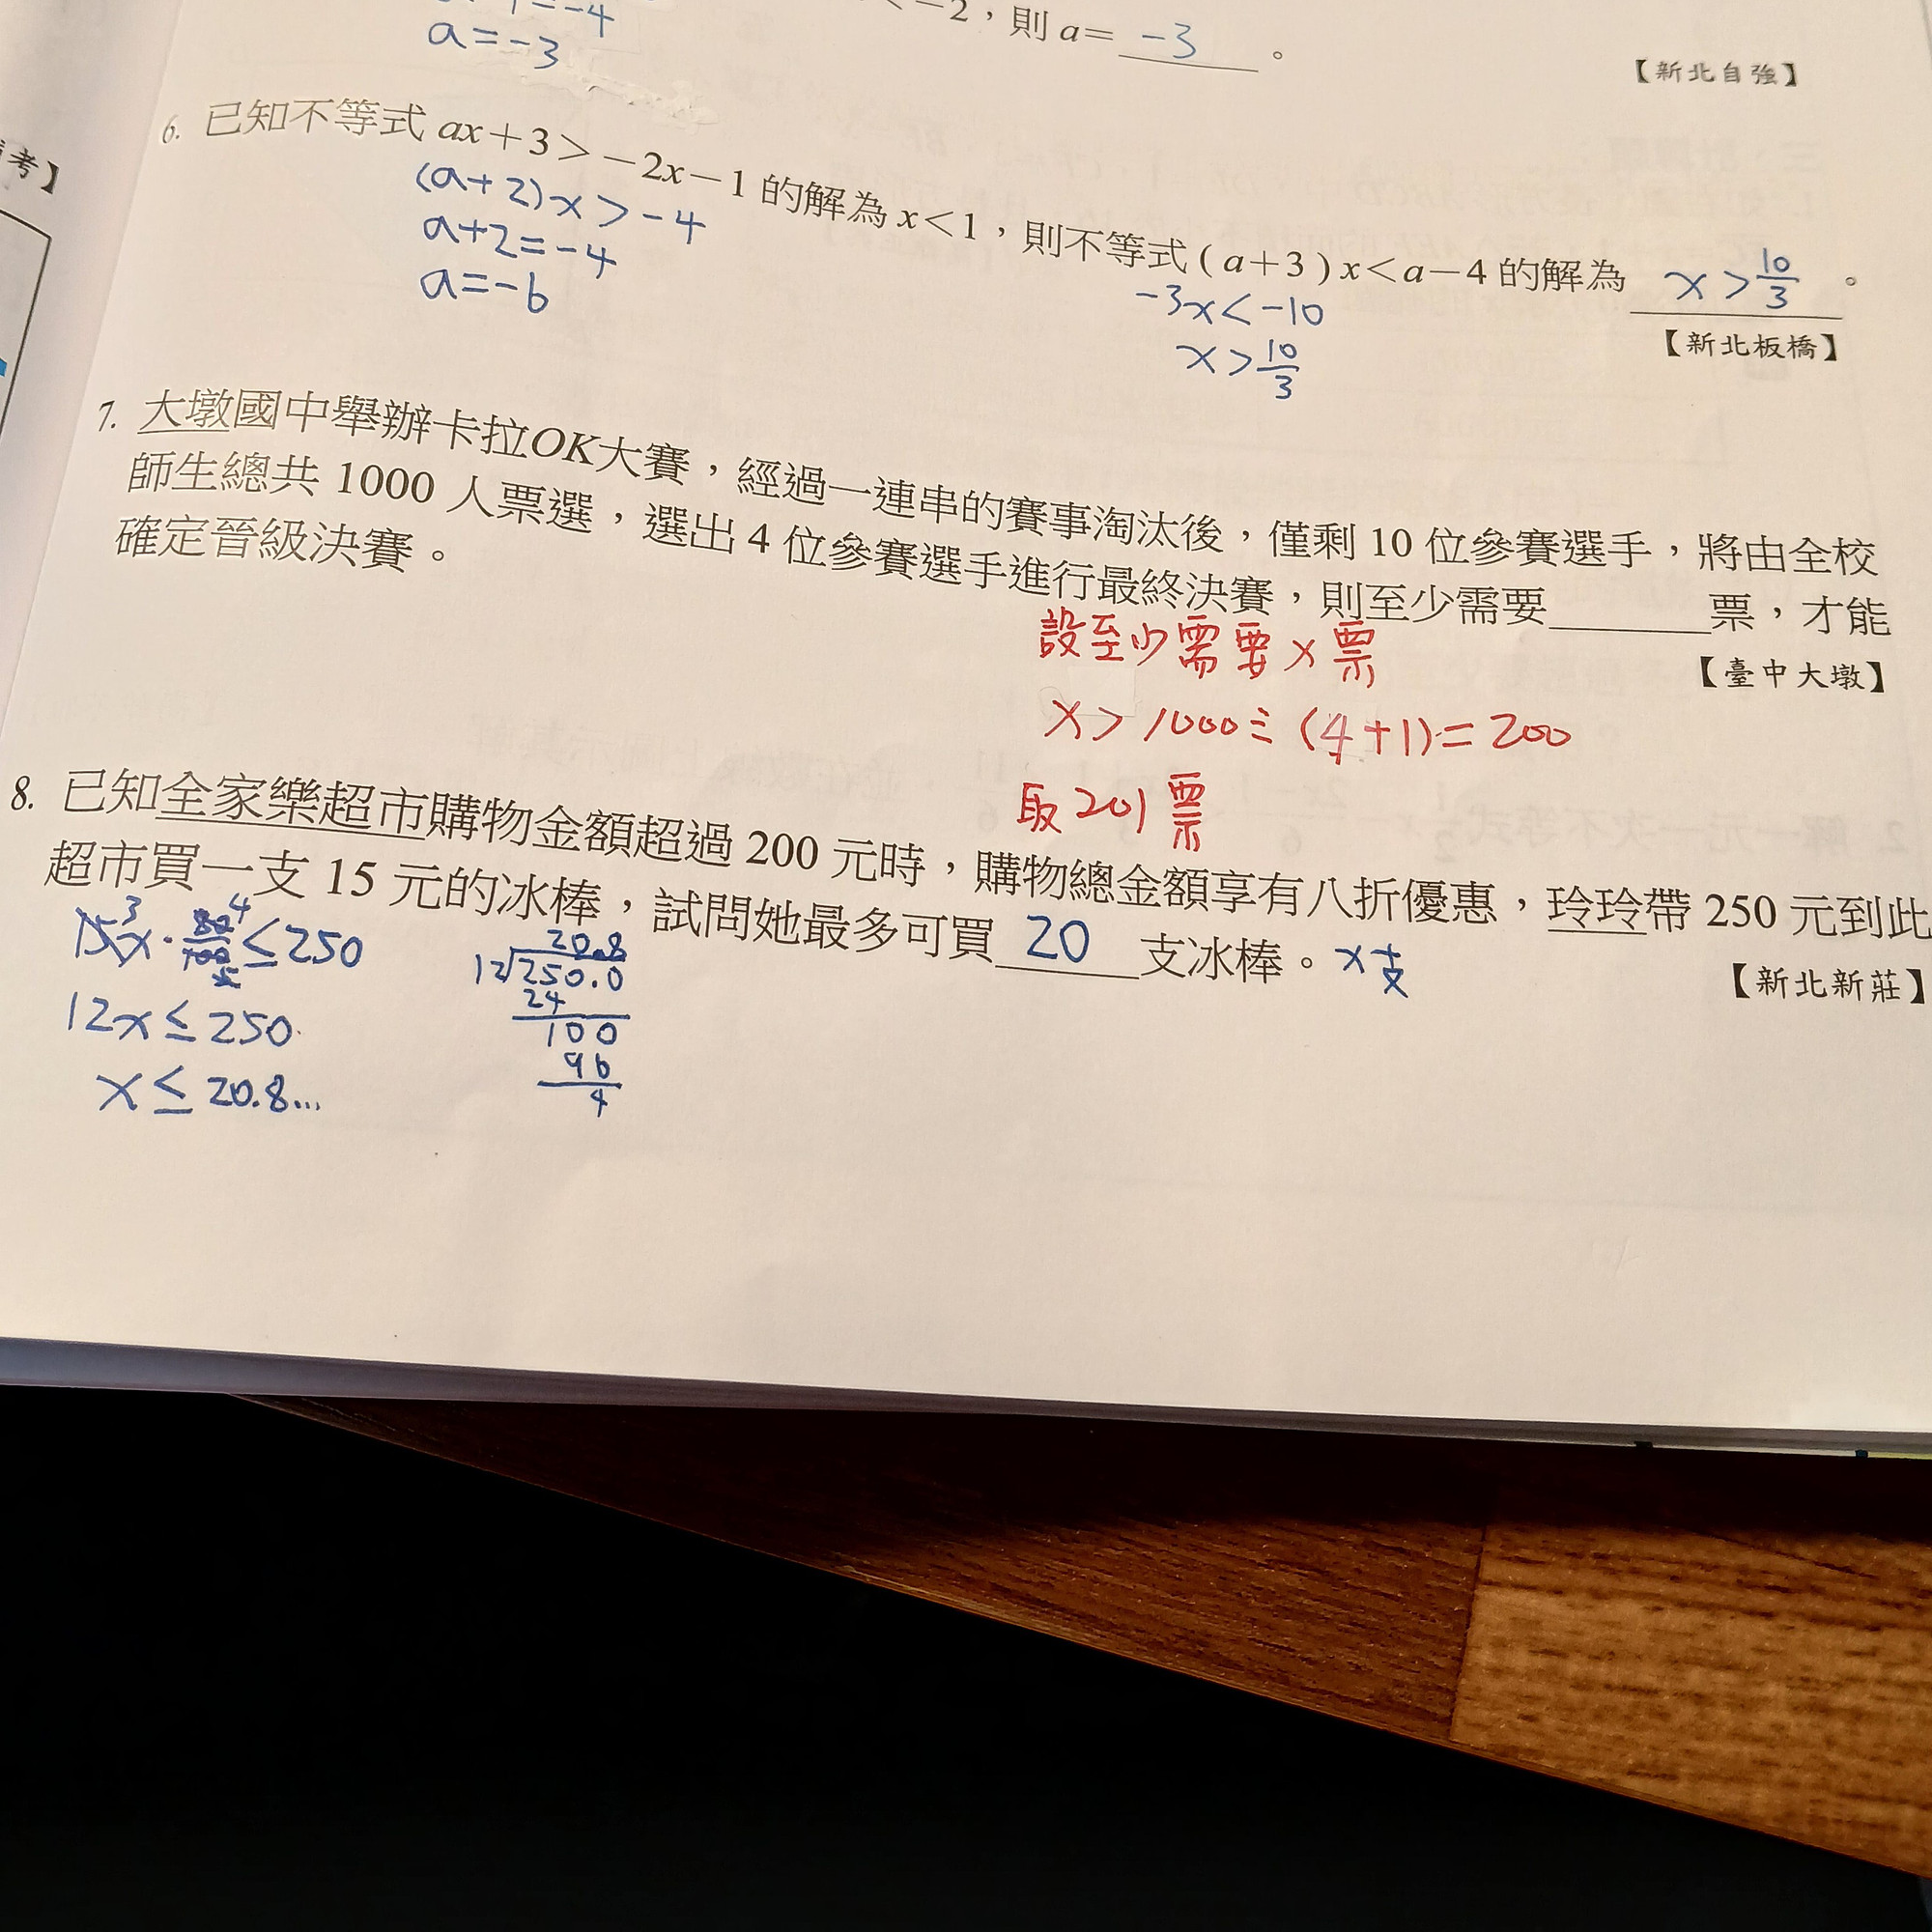 =-4
a=-3
<-2，則 a= -3 。
【新北自強】
考】
6. 已知不等式 ax＋3＞－2x－1 的解為 x＜1，則不等式 ( a＋3 ) x＜a－4 的解為 x>10/3 。
(a+2)x>-4
a+2=-4
a=-6
-3x<-10
x>10/3
【新北板橋】
7. 大墩國中舉辦卡拉OK大賽，經過一連串的賽事淘汰後，僅剩 10 位參賽選手，將由全校
師生總共 1000 人票選，選出 4 位參賽選手進行最終決賽，則至少需要______票，才能
確定晉級決賽。
【臺中大墩】
設至少需要x票
x> 1000÷(4+1)=200
取201票
8. 已知全家樂超市購物金額超過 200 元時，購物總金額享有八折優惠，玲玲帶 250 元到此
超市買一支 15 元的冰棒，試問她最多可買 20 支冰棒。x支
【新北新莊】
15x·80/100≤250
3 4 5
12x≤250
x≤20.8...
20.8
12√250.0
24
100
96
4